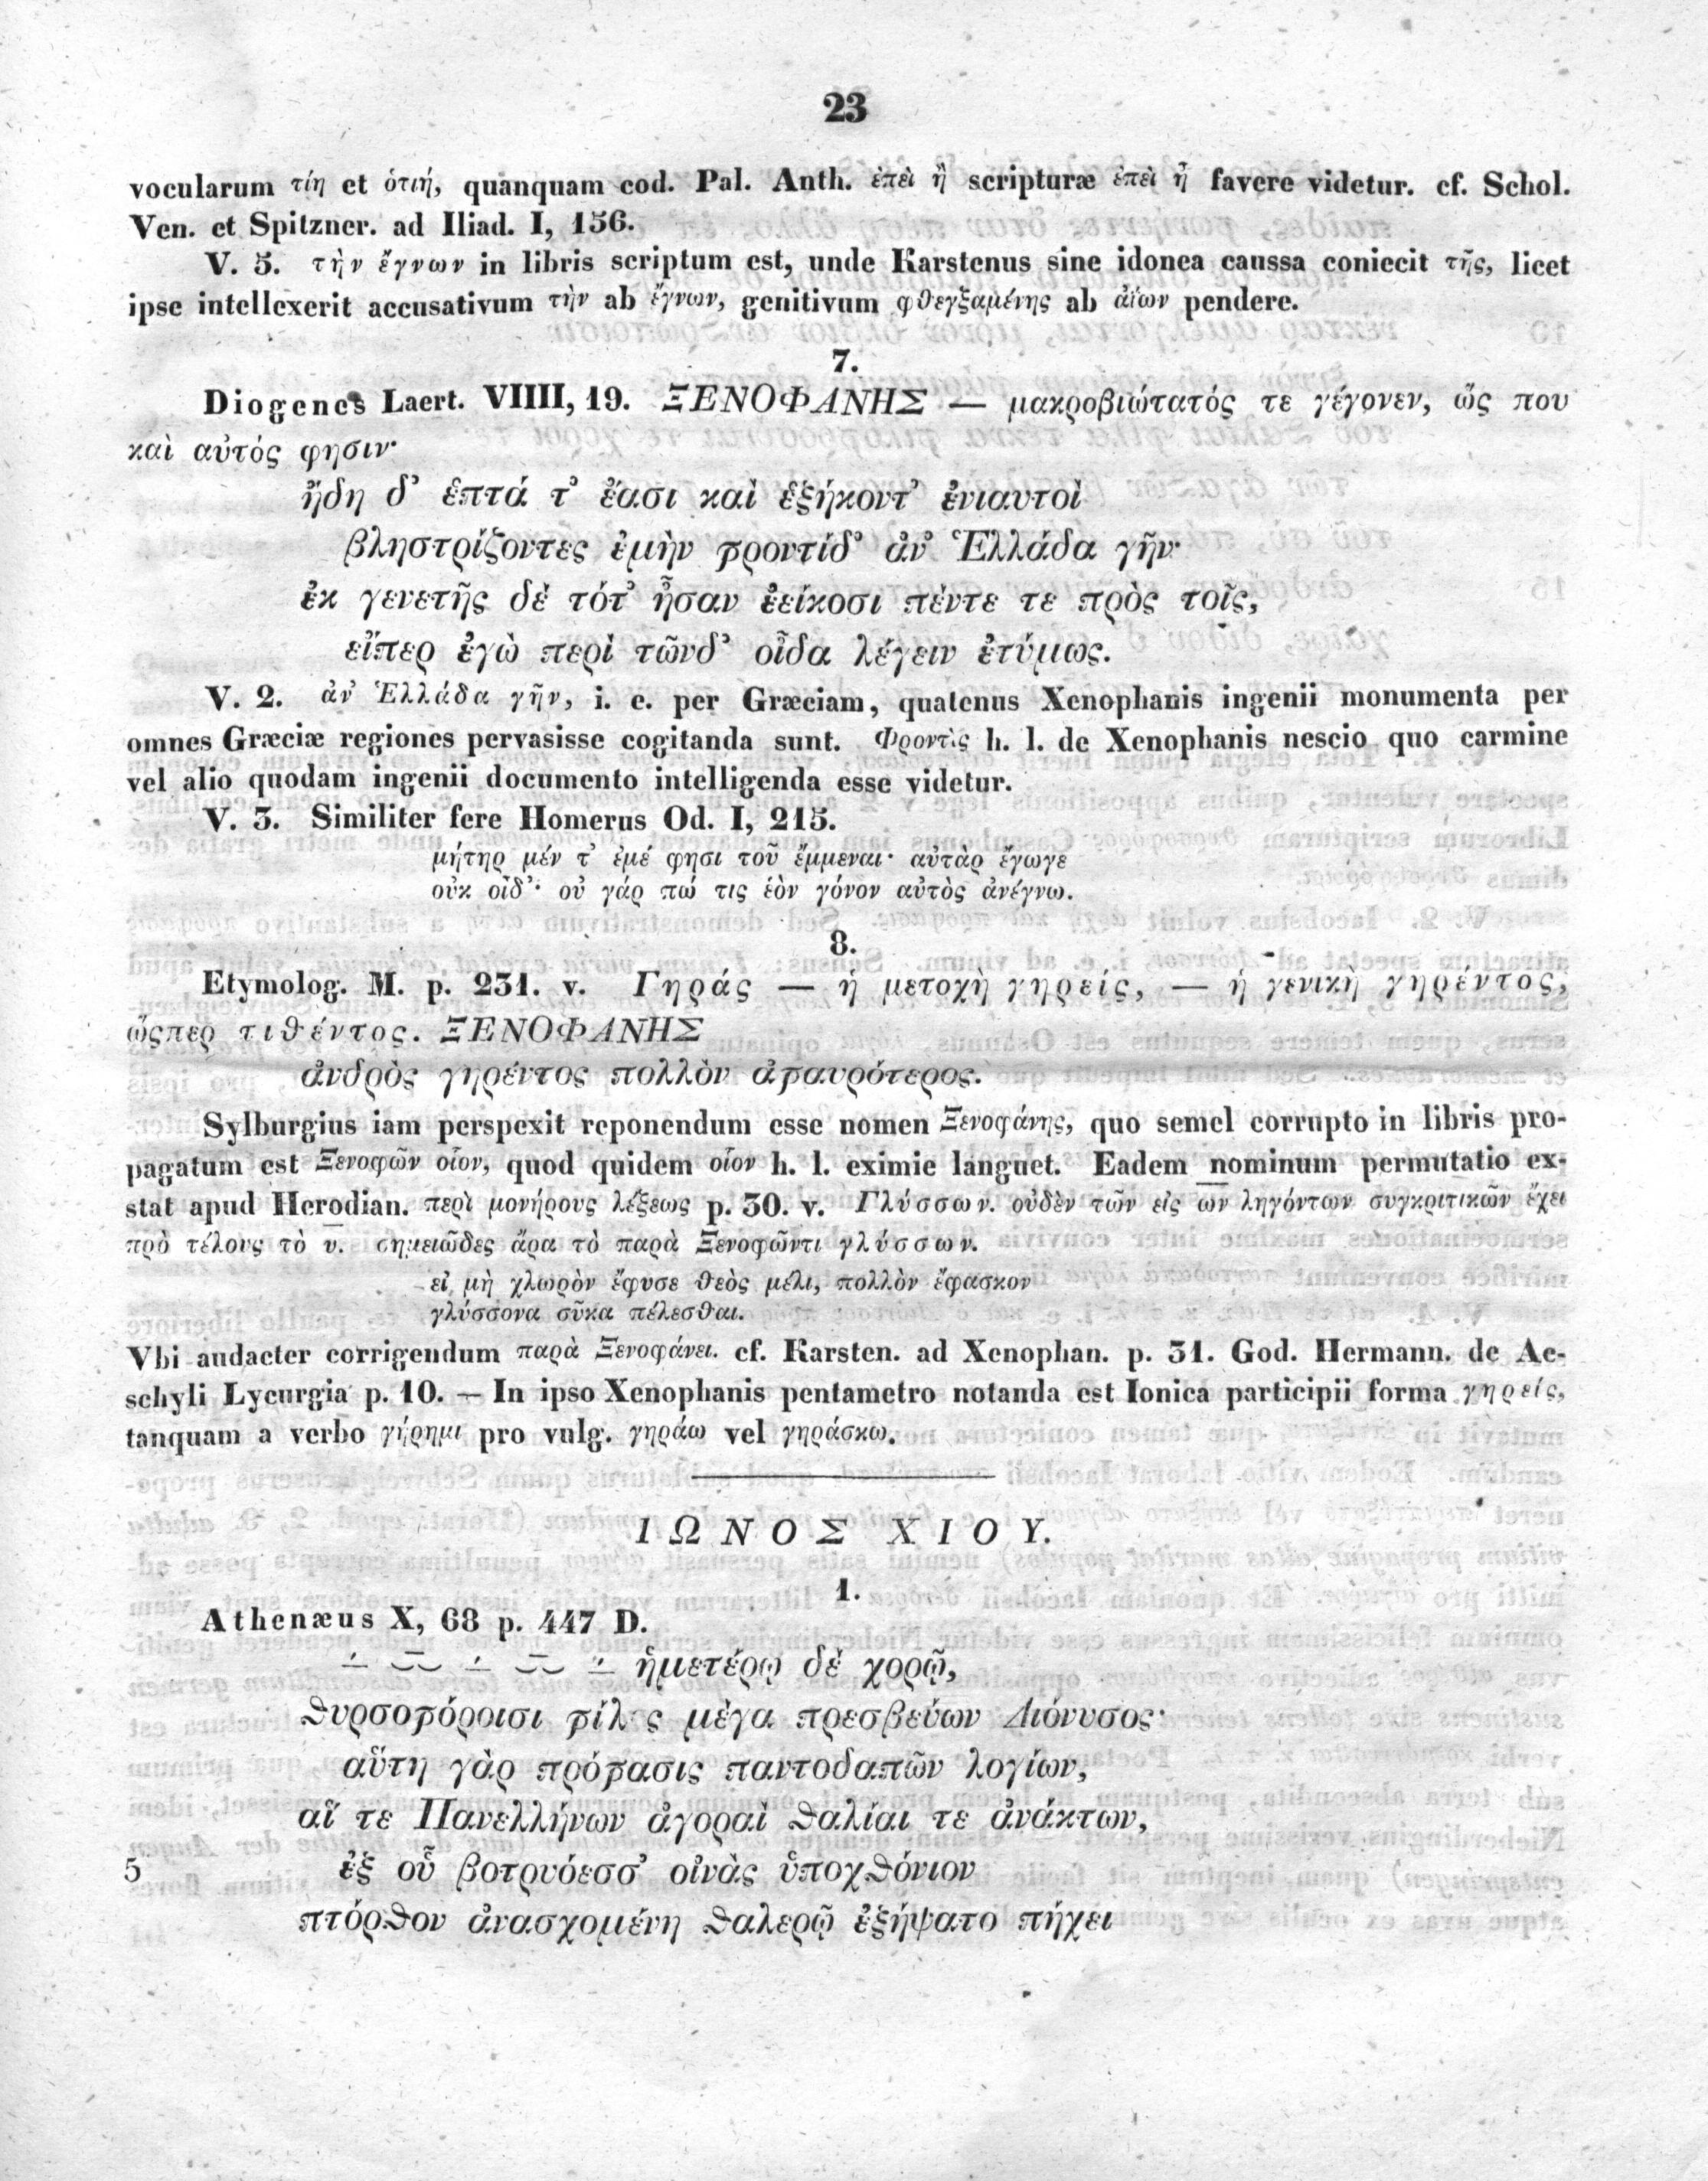 23
vocularum τίη et ὁτιή, quanquam cod. Pal. Anth. ἐπεὶ ἢ scripturæ ἐπεὶ ἦ favere videtur. cf. Schol.
Ven. et Spitzner. ad Iliad. I, 156.
V. 5. τὴν ἔγνων in libris scriptum est, unde Karstenus sine idonea caussa coniecit τῆς, licet
ipse intellexerit accusativum τὴν ab ἔγνων, genitivum φθεγξαμένης ab ἀΐων pendere.
7.
Diogenes Laert. VIIII, 19. ΞΕΝΟΦΑΝΗΣ — μακροβιώτατός τε γέγονεν, ὥς που
καὶ αὐτός φησιν·
ἤδη δ’ ἑπτά τ’ ἔασι καὶ ἑξήκοντ’ ἐνιαυτοὶ
βληστρίζοντες ἐμὴν φροντίδ’ ἀν’ Ἑλλάδα γῆν·
ἐκ γενετῆς δὲ τότ’ ἦσαν ἐείκοσι πέντε τε πρὸς τοῖς,
εἴπερ ἐγὼ περὶ τῶνδ’ οἶδα λέγειν ἐτύμως.
V. 2. ἀν’ Ἑλλάδα γῆν, i. e. per Græciam, quatenus Xenophanis ingenii monumenta per
omnes Græciæ regiones pervasisse cogitanda sunt. Φροντὶς h. l. de Xenophanis nescio quo carmine
vel alio quodam ingenii documento intelligenda esse videtur.
V. 3. Similiter fere Homerus Od. I, 215.
μήτηρ μέν τ’ ἐμέ φησι τοῦ ἔμμεναι· αὐτὰρ ἔγωγε
οὐκ οἶδ’· οὐ γάρ πώ τις ἑὸν γόνον αὐτὸς ἀνέγνω.
8.
Etymolog. M. p. 231. v. Γηράς — ἡ μετοχὴ γηρείς, — ἡ γενικὴ γηρέντος,
ὥςπερ τιθέντος. ΞΕΝΟΦΑΝΗΣ
ἀνδρὸς γηρέντος πολλὸν ἀφαυρότερος.
Sylburgius iam perspexit reponendum esse nomen Ξενοφάνης, quo semel corrupto in libris pro-
pagatum est Ξενοφῶν οἷον, quod quidem οἷον h. l. eximie languet. Eadem nominum permutatio ex-
stat apud Herodian. περὶ μονήρους λέξεως p. 30. v. Γλύσσων. οὐδὲν τῶν εἰς ων ληγόντων συγκριτικῶν ἔχει
πρὸ τέλους τὸ υ. σημειῶδες ἄρα τὸ παρὰ Ξενοφῶντι γλύσσων.
εἰ μὴ χλωρὸν ἔφυσε θεὸς μέλι, πολλὸν ἔφασκον
γλύσσονα σῦκα πέλεσθαι.
Vbi audacter corrigendum παρὰ Ξενοφάνει. cf. Karsten. ad Xenophan. p. 31. God. Hermann. de Ae-
schyli Lycurgia p. 10. — In ipso Xenophanis pentametro notanda est Ionica participii forma γηρείς,
tanquam a verbo γήρημι pro vulg. γηράω vel γηράσκω.
ΙΩΝΟΣ ΧΙΟΥ.
1.
Athenæus X, 68 p. 447 D.
ἡμετέρῳ δὲ χορῷ,
θυρσοφόροισι φίλος μέγα πρεσβεύων Διόνυσος·
αὕτη γὰρ πρόφασις παντοδαπῶν λογίων,
αἵ τε Πανελλήνων ἀγοραὶ θαλίαι τε ἀνάκτων,
5 ἐξ οὗ βοτρυόεσσ’ οἰνὰς ὑποχθόνιον
πτόρθον ἀνασχομένη θαλερῷ ἐξήψατο πήχει